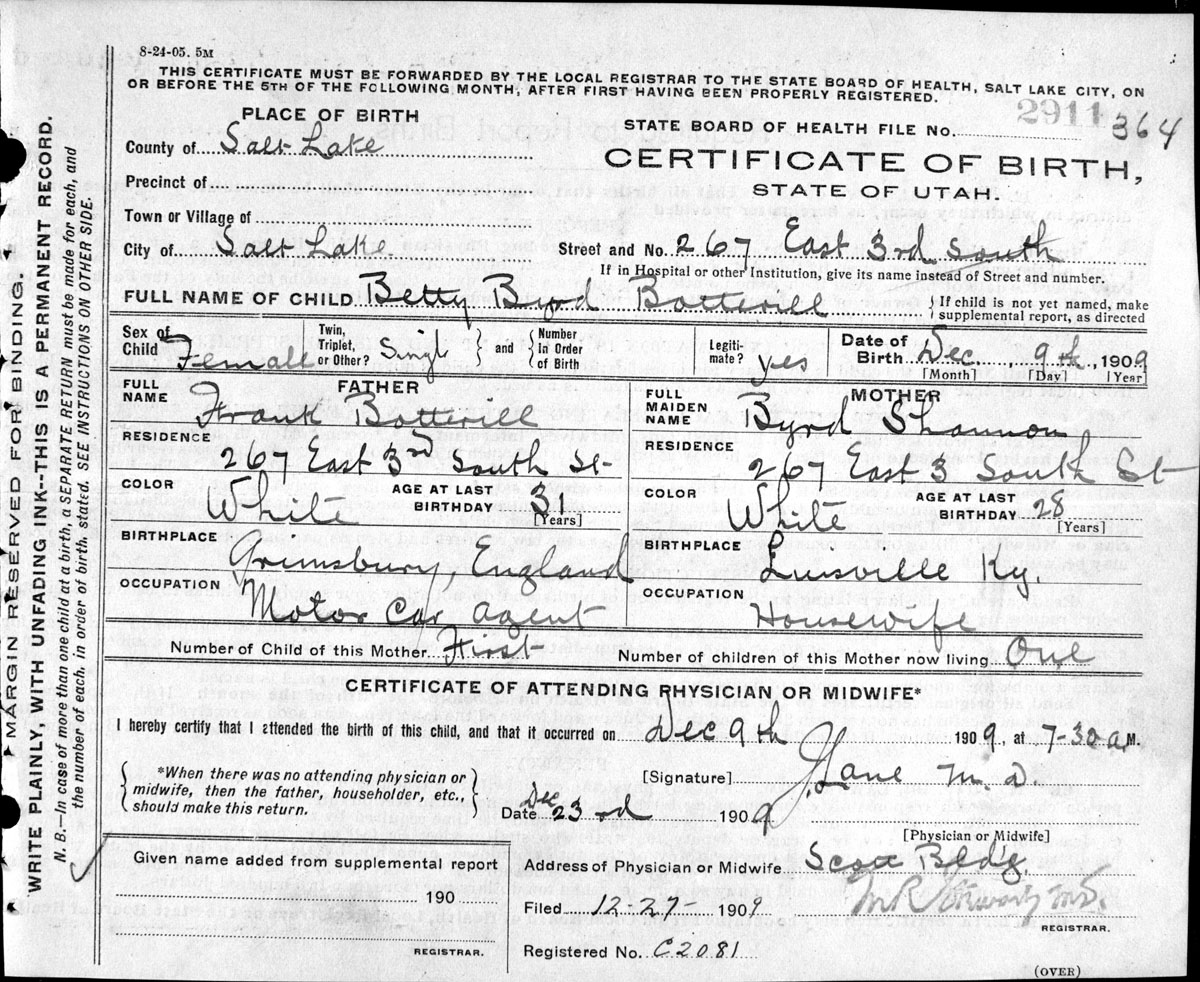 8-24-05. 5M
THIS CERTIFICATE MUST BE FORWARDED BY THE LOCAL REGISTRAR TO THE STATE BOARD OF HEALTH, SALT LAKE CITY, ON
OR BEFORE THE 5TH OF THE FOLLOWING MONTH, AFTER FIRST HAVING BEEN PROPERLY REGISTERED.
PLACE OF BIRTH
STATE BOARD OF HEALTH FILE NO. 2911 364
County of Salt Lake
CERTIFICATE OF BIRTH,
STATE OF UTAH.
Precinct of
Town or Village of
City of Salt Lake Street and No. 267 East 3rd South
If in Hospital or other Institution, give its name instead of Street and number.
FULL NAME OF CHILD Betty Byrd Botterill { If child is not yet named, make
supplemental report, as directed
Sex of Child Female Twin, Triplet, or Other? Single } and { Number in Order of Birth Legiti-mate? yes Date of Birth Dec 9th, 1909
[Month] [Day] [Year]
FULL NAME FATHER Frank Botterill
FULL MAIDEN NAME MOTHER Byrd Shannon
RESIDENCE 267 East 3rd South St
RESIDENCE 267 East 3 South St
COLOR White AGE AT LAST BIRTHDAY 31 [Years]
COLOR White AGE AT LAST BIRTHDAY 28 [Years]
BIRTHPLACE Grimsbury, England
BIRTHPLACE Luisville Ky.
OCCUPATION Motor Car agent
OCCUPATION Housewife
Number of Child of this Mother First Number of children of this Mother now living One
CERTIFICATE OF ATTENDING PHYSICIAN OR MIDWIFE*
I hereby certify that I attended the birth of this child, and that it occurred on Dec 9th 1909, at 7-30 a M.
{ *When there was no attending physician or
midwife, then the father, householder, etc.,
should make this return. }
[Signature] J. Lane M.D.
Date Dec 23rd 1909
[Physician or Midwife]
Given name added from supplemental report
190
REGISTRAR.
Address of Physician or Midwife Scott Bldg.
Filed 12-27- 1909 M.R. Stewart M.D.
REGISTRAR.
Registered No. C2081
(OVER)
MARGIN RESERVED FOR BINDING.
WRITE PLAINLY, WITH UNFADING INK--THIS IS A PERMANENT RECORD.
N. B.—In case of more than one child at a birth, a SEPARATE RETURN must be made for each, and
the number of each, in order of birth, stated. SEE INSTRUCTIONS ON OTHER SIDE.